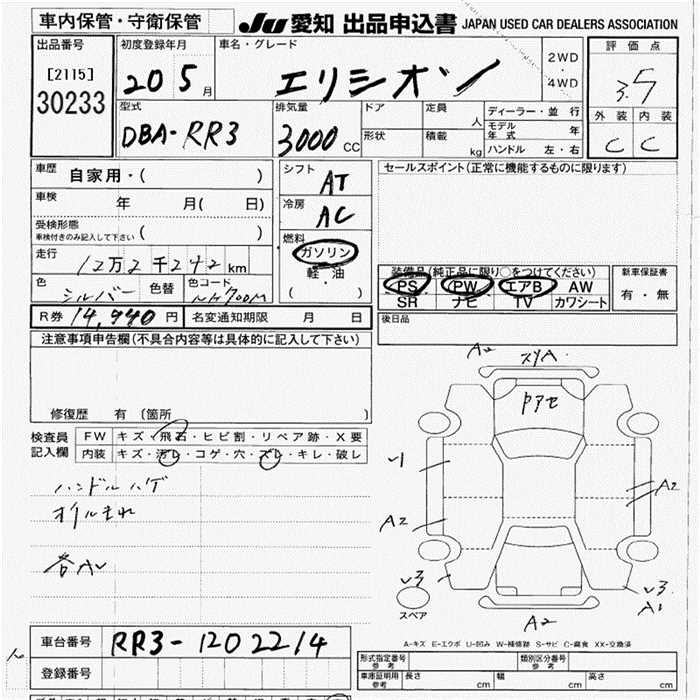 車内保管・守衛保管
JU 愛知 出品申込書 JAPAN USED CAR DEALERS ASSOCIATION
出品番号
[2115]
30233
初度登録年月
20 5 月
車名・グレード
エリシオン
2WD
・
4WD
評価点
3.5
外装 内装
C C
型式
DBA-RR3
排気量
3000 CC
ドア
形状
定員 人
積載 kg
ディーラー・並行
モデル年式 年
ハンドル 左・右
車歴 自家用・( )
車検 年 月( 日)
受検形態
車検付きのみ記入して下さい ( )
走行 12万2千242 km
色 シルバー 色替 色コード NH700M
シフト AT
冷房 AC
燃料
ガソリン
軽・油
( )
セールスポイント(正常に機能するものに限ります)
装備品(純正品に限り○をつけてください)
PS PW エアB AW
SR ナビ TV カワシート
新車保証書
有・無
R券 14,940 円 名変通知期限 月 日
後日品
注意事項申告欄(不具合内容等は具体的に記入して下さい)
修復歴 有 (箇所 )
検査員記入欄
FW キズ・飛石・ヒビ割・リペア跡・X要
内装 キズ・汚レ・コゲ・穴・スレ・キレ・破レ
ハンドルハゲ
オイルもれ
A2
Pアセ
A2
A2
A1
A2
スペア
A-キズ E-エクボ U-凹み W-補修跡 S-サビ C-腐食 XX-交換済
車台番号 RR3-1202214
登録番号
形式指定番号
参考
類別区分番号
参考
車庫証明用
参考
長さ cm 幅 cm 高さ cm